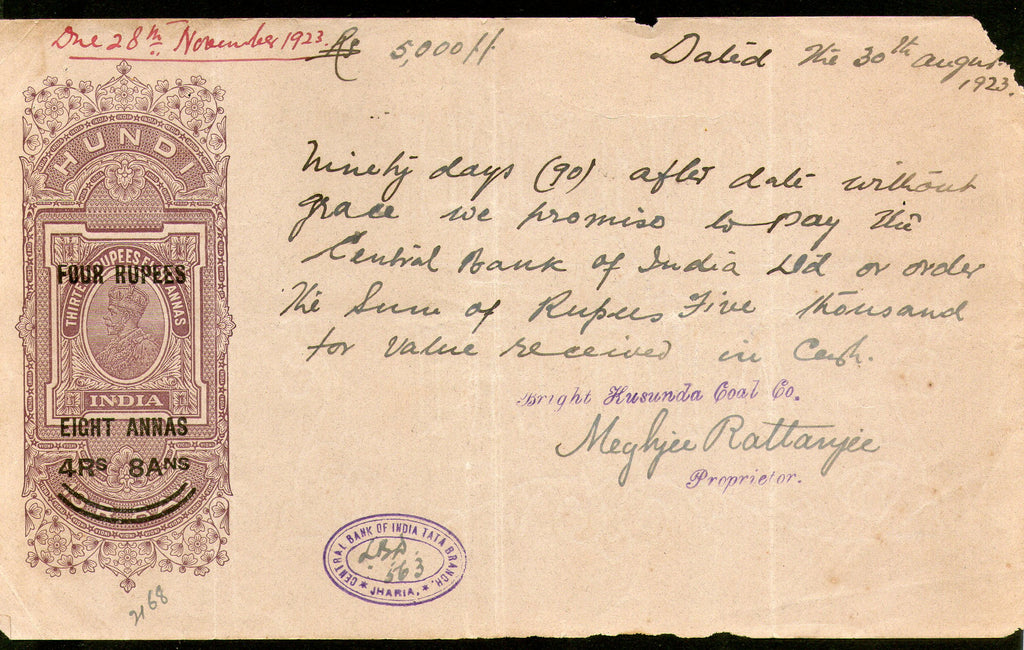 Due 28th November 1923.
Rs 5,000//
Dated the 30th August
1923.
HUNDI
FOUR RUPEES
INDIA
EIGHT ANNAS
4RS 8ANS
Ninety days (90) after date without
grace we promise to pay the
Central Bank of India Ltd or order
the Sum of Rupees Five thousand
for value received in Cash.
Bright Kusunda Coal Co.
Meghjee Rattanjee
Proprietor.
CENTRAL BANK OF INDIA TATA BRANCH.
563
JHARIA.
2168